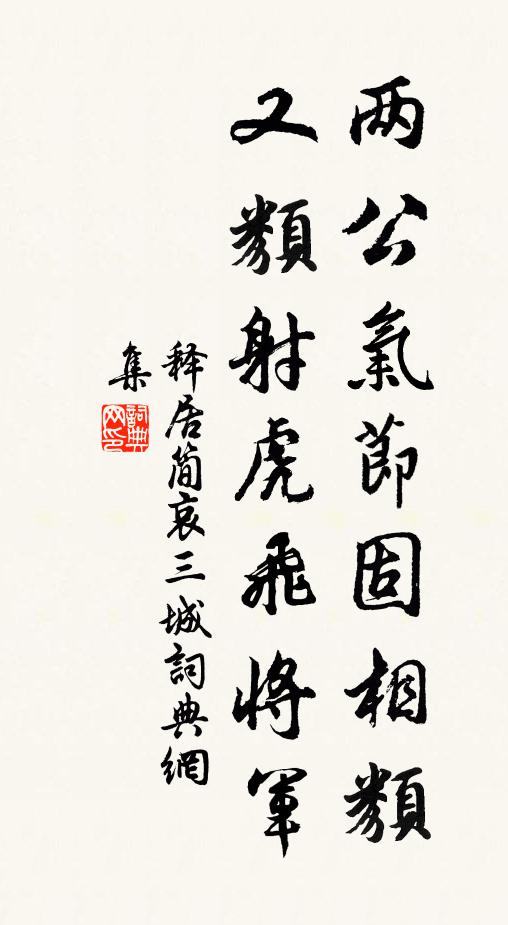 两公氣節固相類
又類射虎飛將軍
释居簡哀三城詞典網
集
詞典网印